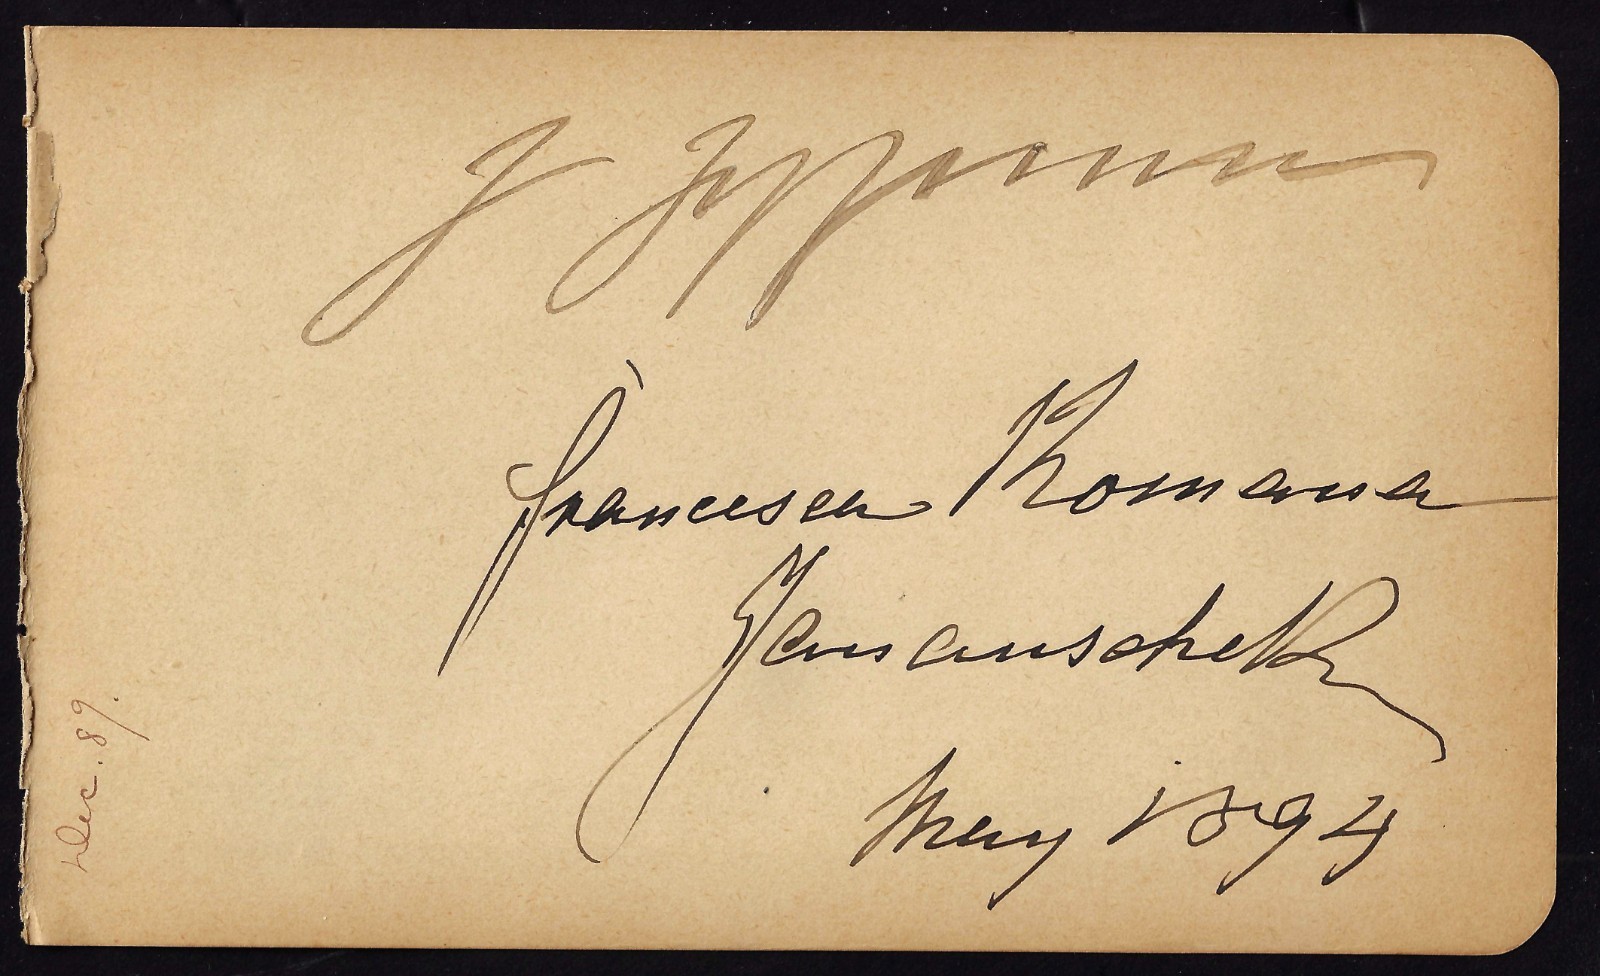 Francesca Romana
Janauschek
May 1894
Dec. 89.